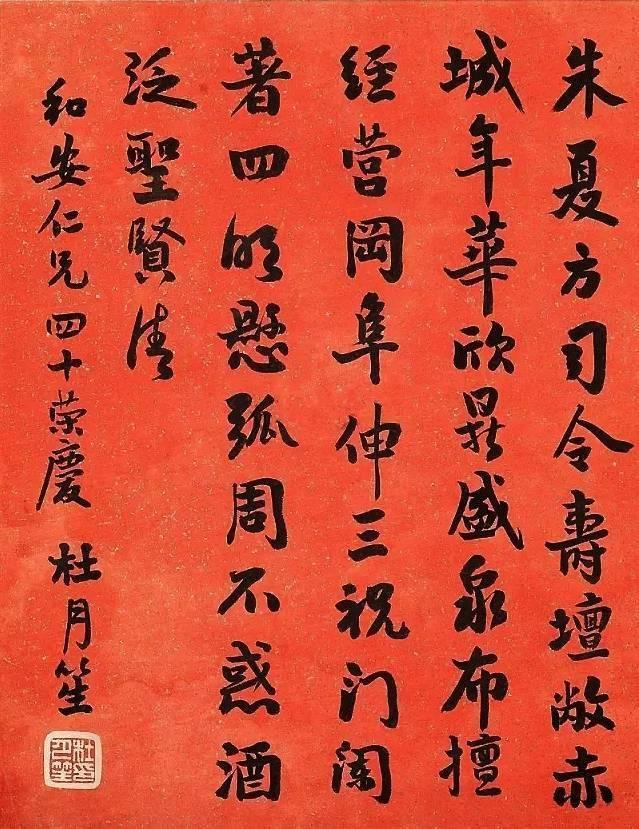 朱夏方司令壽壇敞赤
城年華欣鼎盛泉布擅
經營岡阜伸三祝门闌
著四明懸弧周不惑酒
泛聖賢清
和安仁兄四十荣慶 杜月笙
杜印月笙